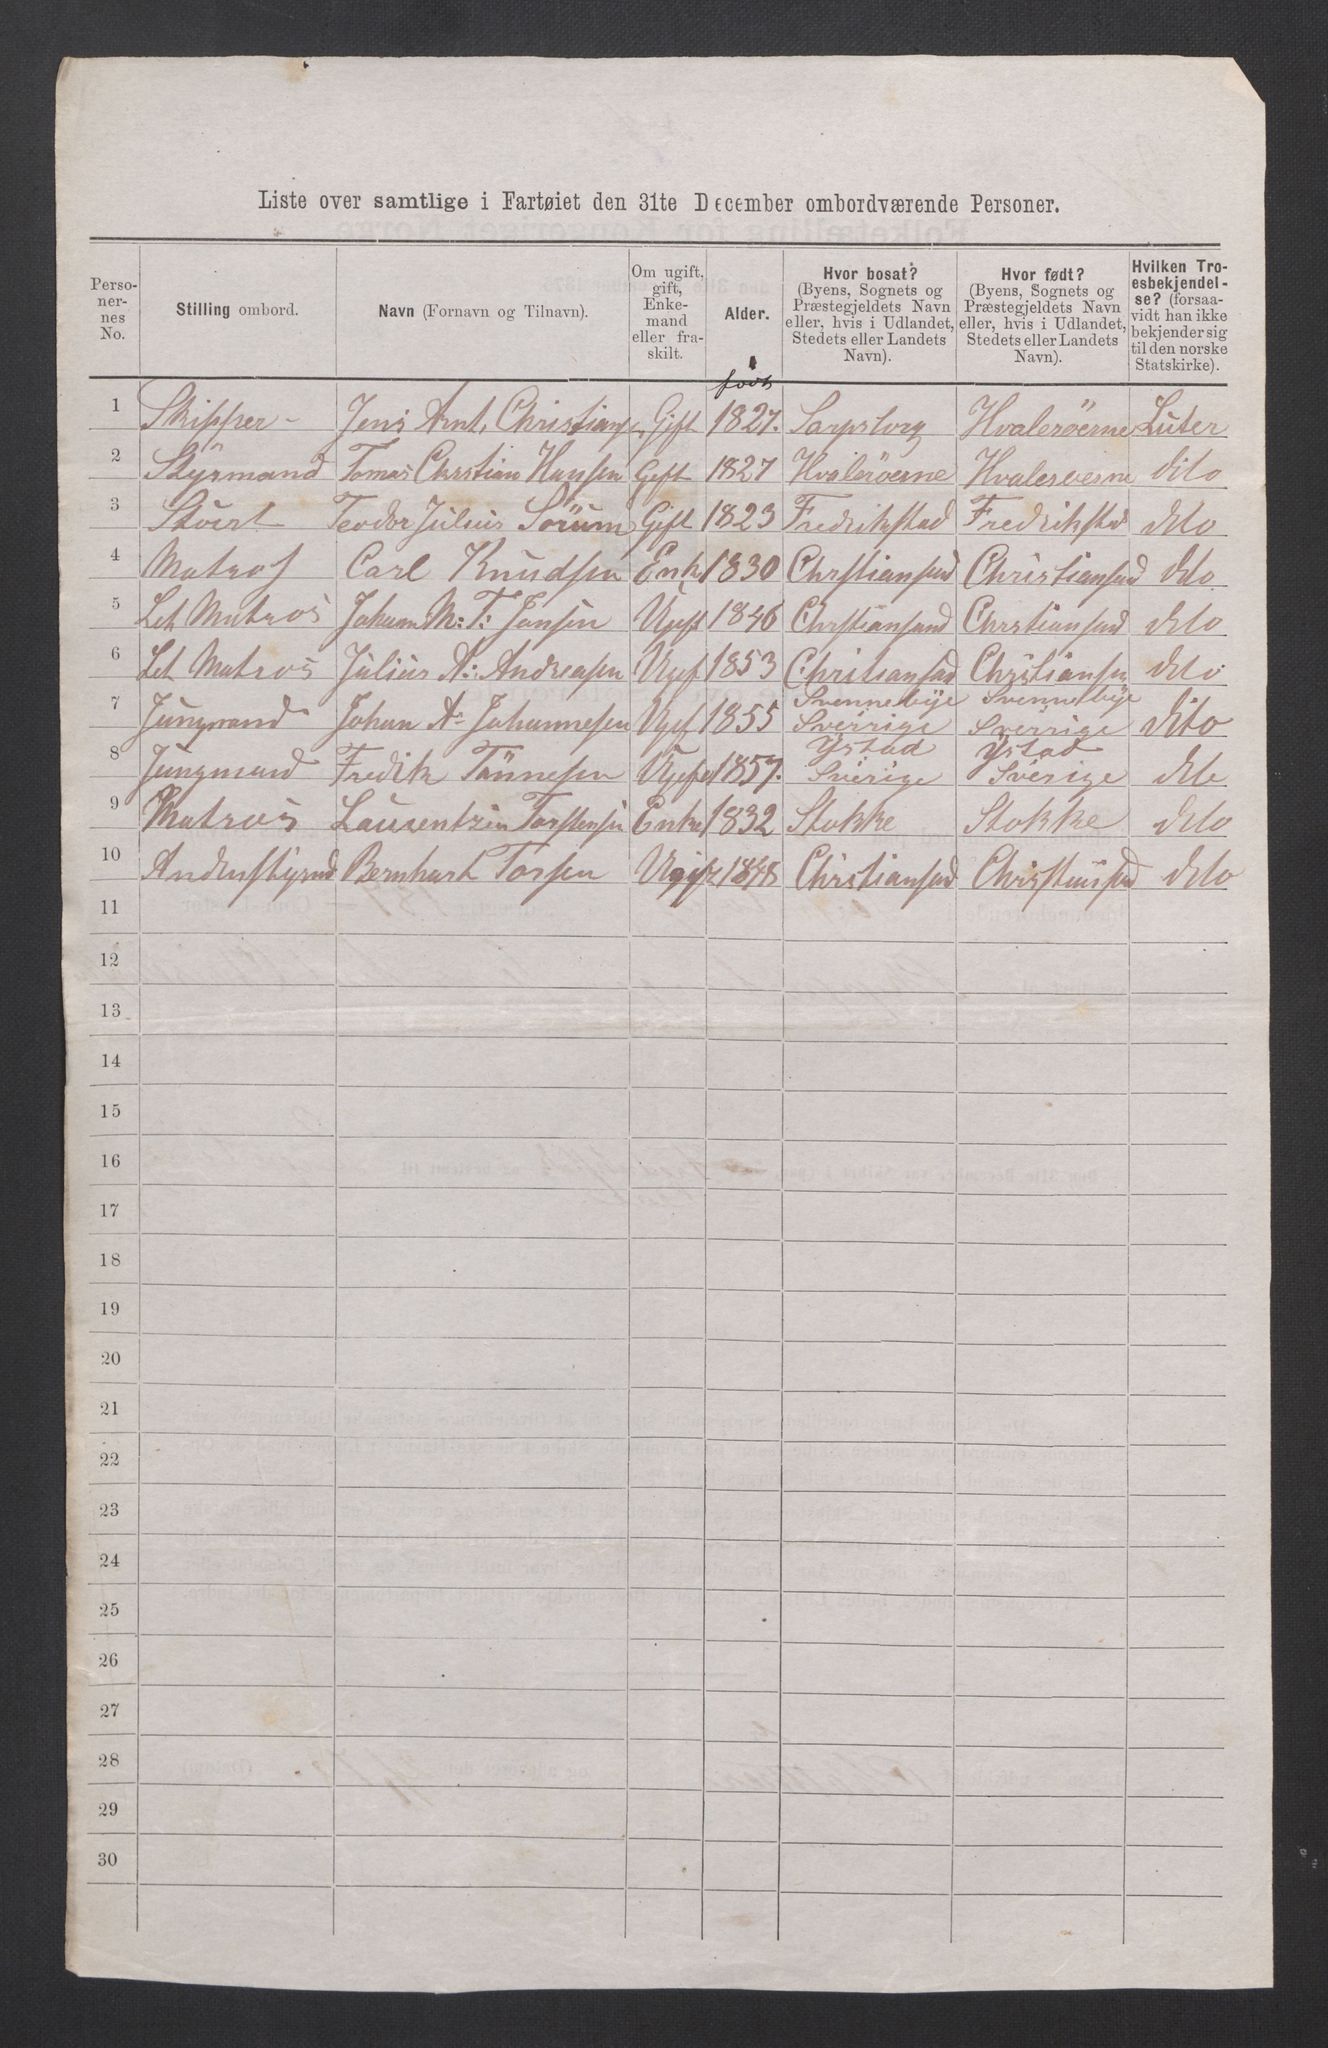 Liste over samtlige i Fartøiet den 31te December ombordværende Personer.
Personernes No. | Stilling ombord. | Navn (Fornavn og Tilnavn). | Om ugift, gift, Enkemand eller fraskilt. | Alder. | Hvor bosat? (Byens, Sognets og Præstegjeldets Navn eller, hvis i Udlandet, Stedets eller Landets Navn). | Hvor født? (Byens, Sognets og Præstegjeldets Navn eller, hvis i Udlandet, Stedets eller Landets Navn). | Hvilken Troesbekjendelse? (forsaavidt han ikke bekjender sig til den norske Statskirke).
født
1 Skipper - Jens Arnt, Christians Gift 1827. Sarpsborg Hvalerøerne Luter
2 Styrmand Tomas Chrstian Hansen Gift 1827 Hvalerøerne Hvalerøerne dito
3 Stuert Teodor Julius Sörum Gift 1823 Fredrikstad Fredrikstad dito
4 Matros Carl Knudsen Enk 1830 Chrstiansand Christiansand dito
5 Let Matros Johan M: T: Jansen Ugift 1846 Chrstiansand Chrstiansand dito
6 Let Matros Julius A: Andreasen Ugif 1853 Christiansad Christiansen dito
7 Jungmand Johan A: Johannesen Ugif 1855 Svennebye Sverrige Svennebye Sverrige dito
8 Jungmand Fredik Tönnesen Ugift 1857. Ystad Sverige Ystad Sverige dito
9 Matros Laurentzin Torstensen Enke 1832 Stokke Stokke dito
10 Andenstyrmd Bernhart Torsen Ugift 1848 Christiansad Christiansad dito
11
12
13
14
15
16
17
18
19
20
21
22
23
24
25
26
27
28
29
30